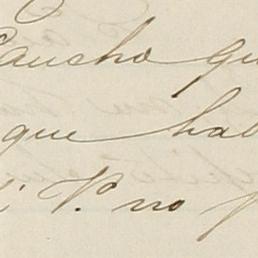 Caucho qu
que hab
i V. no p